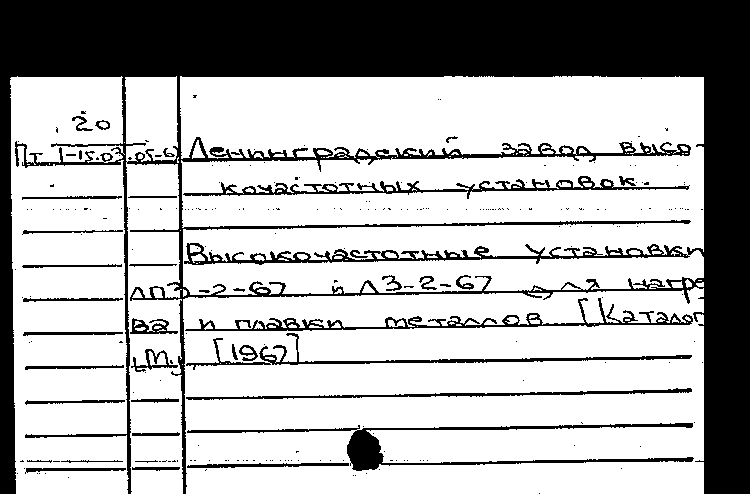 20
Пт 1-15.03.05-6 Ленинградский завод высо-
кочастотных установок.
Высокочастотные установки
ЛПЗ-2-67 и ЛЗ-2-67 для нагре
ва и плавки металлов [Катало
[1967]